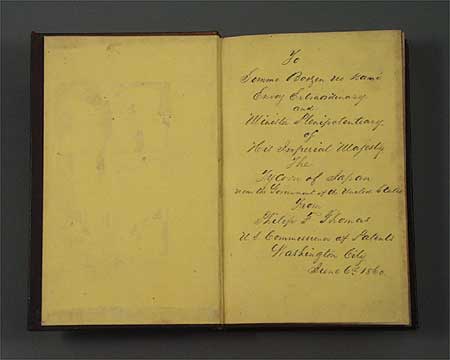 To
Simme Boozen no kami
Envoy Extraordinary
and
Minister Plenipotentiary
of
His Imperial Majesty
The
Tycoon of Japan
near the Government of the United States
From
Philip F Thomas
U.S. Commissioner of Patents
Washington City
June 6th 1860